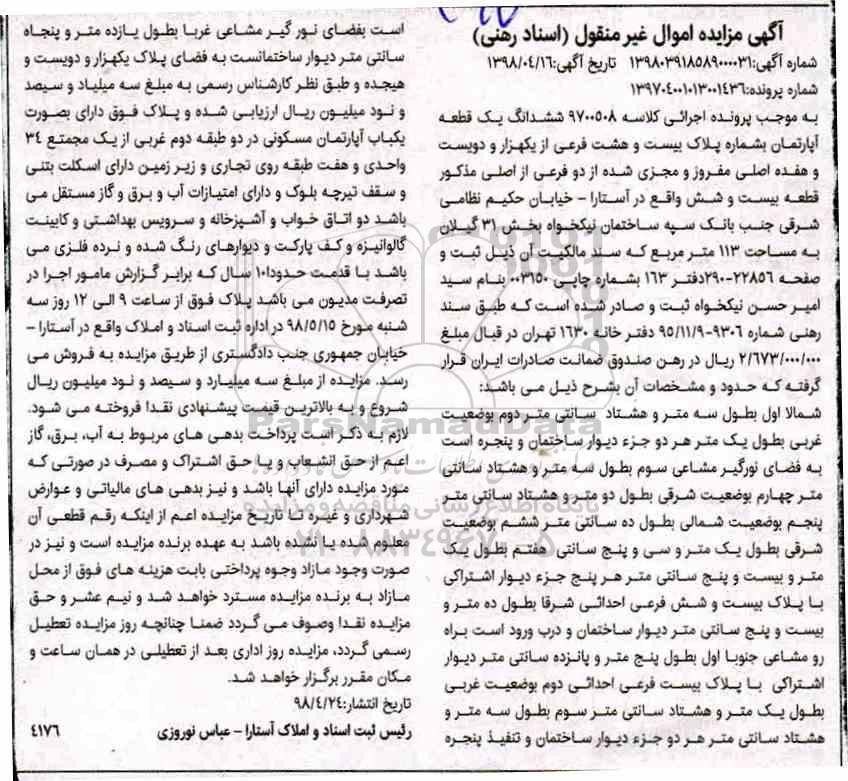 آگهی مزایده اموال غیر منقول (اسناد رهنی)
شماره آگهی:۱۳۹۸۰۳۹۱۸۵۸۹۰۰۰۰۳۱ تاریخ آگهی:۱۳۹۸/۰۴/۱۶
شماره پرونده:۱۳۹۷۰۴۰۰۱۰۱۳۰۰۱۴۳۶
به موجب پرونده اجرائی کلاسه ۹۷۰۰۵۰۸ ششدانگ یک قطعه
آپارتمان بشماره پلاک بیست و هشت فرعی از یکهزار و دویست
و هفده اصلی مفروز و مجزی شده از دو فرعی از اصلی مذکور
قطعه بیست و شش واقع در آستارا – خیابان حکیم نظامی
شرقی جنب بانک سپه ساختمان نیکخواه بخش ۳۱ گیلان
به مساحت ۱۱۳ متر مربع که سند مالکیت آن ذیل ثبت و
صفحه ۲۲۸۵۶-۲۹۰دفتر ۱۶۳ بشماره چاپی ۰۰۳۶۵۰ بنام سید
امیر حسن نیکخواه ثبت و صادر شده است که طبق سند
رهنی شماره ۹۳۰۶-۹۵/۱۱/۹ دفتر خانه ۱۶۳۰ تهران در قبال مبلغ
۲/۶۷۳/۰۰۰/۰۰۰ ریال در رهن صندوق ضمانت صادرات ایران قرار
گرفته که حدود و مشخصات آن بشرح ذیل می باشد:
شمالا اول بطول سه متر و هشتاد سانتی متر دوم بوضعیت
غربی بطول یک متر هر دو جزء دیوار ساختمان و پنجره است
به فضای نورگیر مشاعی سوم بطول سه متر و هشتاد سانتی
متر چهارم بوضعیت شرقی بطول دو متر و هشتاد سانتی متر
پنجم بوضعیت شمالی بطول ده سانتی متر ششم بوضعیت
شرقی بطول یک متر و سی و پنج سانتی هفتم بطول یک
متر و بیست و پنج سانتی متر هر پنج جزء دیوار اشتراکی
با پلاک بیست و شش فرعی احداثی شرقا بطول ده متر و
بیست و پنج سانتی متر دیوار ساختمان و درب ورود است براه
رو مشاعی جنوبا اول بطول پنج متر و پانزده سانتی متر دیوار
اشتراکی با پلاک بیست فرعی احداثی دوم بوضعیت غربی
بطول یک متر و هشتاد سانتی متر سوم بطول سه متر و
هشتاد سانتی متر هر دو جزء دیوار ساختمان و تنفیذ پنجره
است بفضای نور گیر مشاعی غربا بطول یازده متر و پنجاه
سانتی متر دیوار ساختمانست به فضای پلاک یکهزار و دویست و
هیجده و طبق نظر کارشناس رسمی به مبلغ سه میلیاد و سیصد
و نود میلیون ریال ارزیابی شده و پلاک فوق دارای بصورت
یکباب آپارتمان مسکونی در دو طبقه دوم غربی از یک مجمتع ۳۴
واحدی و هفت طبقه روی تجاری و زیر زمین دارای اسکلت بتنی
و سقف تیرچه بلوک و دارای امتیازات آب و برق و گاز مستقل می
باشد دو اتاق خواب و آشپزخانه و سرویس بهداشتی و کابینت
گالوانیزه و کف پارکت و دیوارهای رنگ شده و نرده فلزی می
باشد با قدمت حدودا۱۰ سال که برابر گزارش مامور اجرا در
تصرفت مدیون می باشد پلاک فوق از ساعت ۹ الی ۱۲ روز سه
شنبه مورخ ۹۸/۵/۱۵ در اداره ثبت اسناد و املاک واقع در آستارا –
خیابان جمهوری جنب دادگستری از طریق مزایده به فروش می
رسد. مزایده از مبلغ سه میلیارد و سیصد و نود میلیون ریال
شروع و به بالاترین قیمت پیشنهادی نقدا فروخته می شود.
لازم به ذکر است پرداخت بدهی های مربوط به آب، برق، گاز
اعم از حق انشعاب و یا حق اشتراک و مصرف در صورتی که
مورد مزایده دارای آنها باشد و نیز بدهی های مالیاتی و عوارض
شهرداری و غیره تا تاریخ مزایده اعم از اینکه رقم قطعی آن
معلوم شده یا نشده باشد به عهده برنده مزایده است و نیز در
صورت وجود مازاد وجوه پرداختی بابت هزینه های فوق از محل
مازاد به برنده مزایده مسترد خواهد شد و نیم عشر و حق
مزایده نقدا وصول می گردد ضمنا چنانچه روز مزایده تعطیل
رسمی گردد، مزایده روز اداری بعد از تعطیلی در همان ساعت و
مکان مقرر برگزار خواهد شد.
تاریخ انتشار:۹۸/۴/۲۴
رئیس ثبت اسناد و املاک آستارا – عباس نوروزی ۴۱۷۶
ParsNamadData
پایگاه اطلاع رسانی مناقصه و مزایده